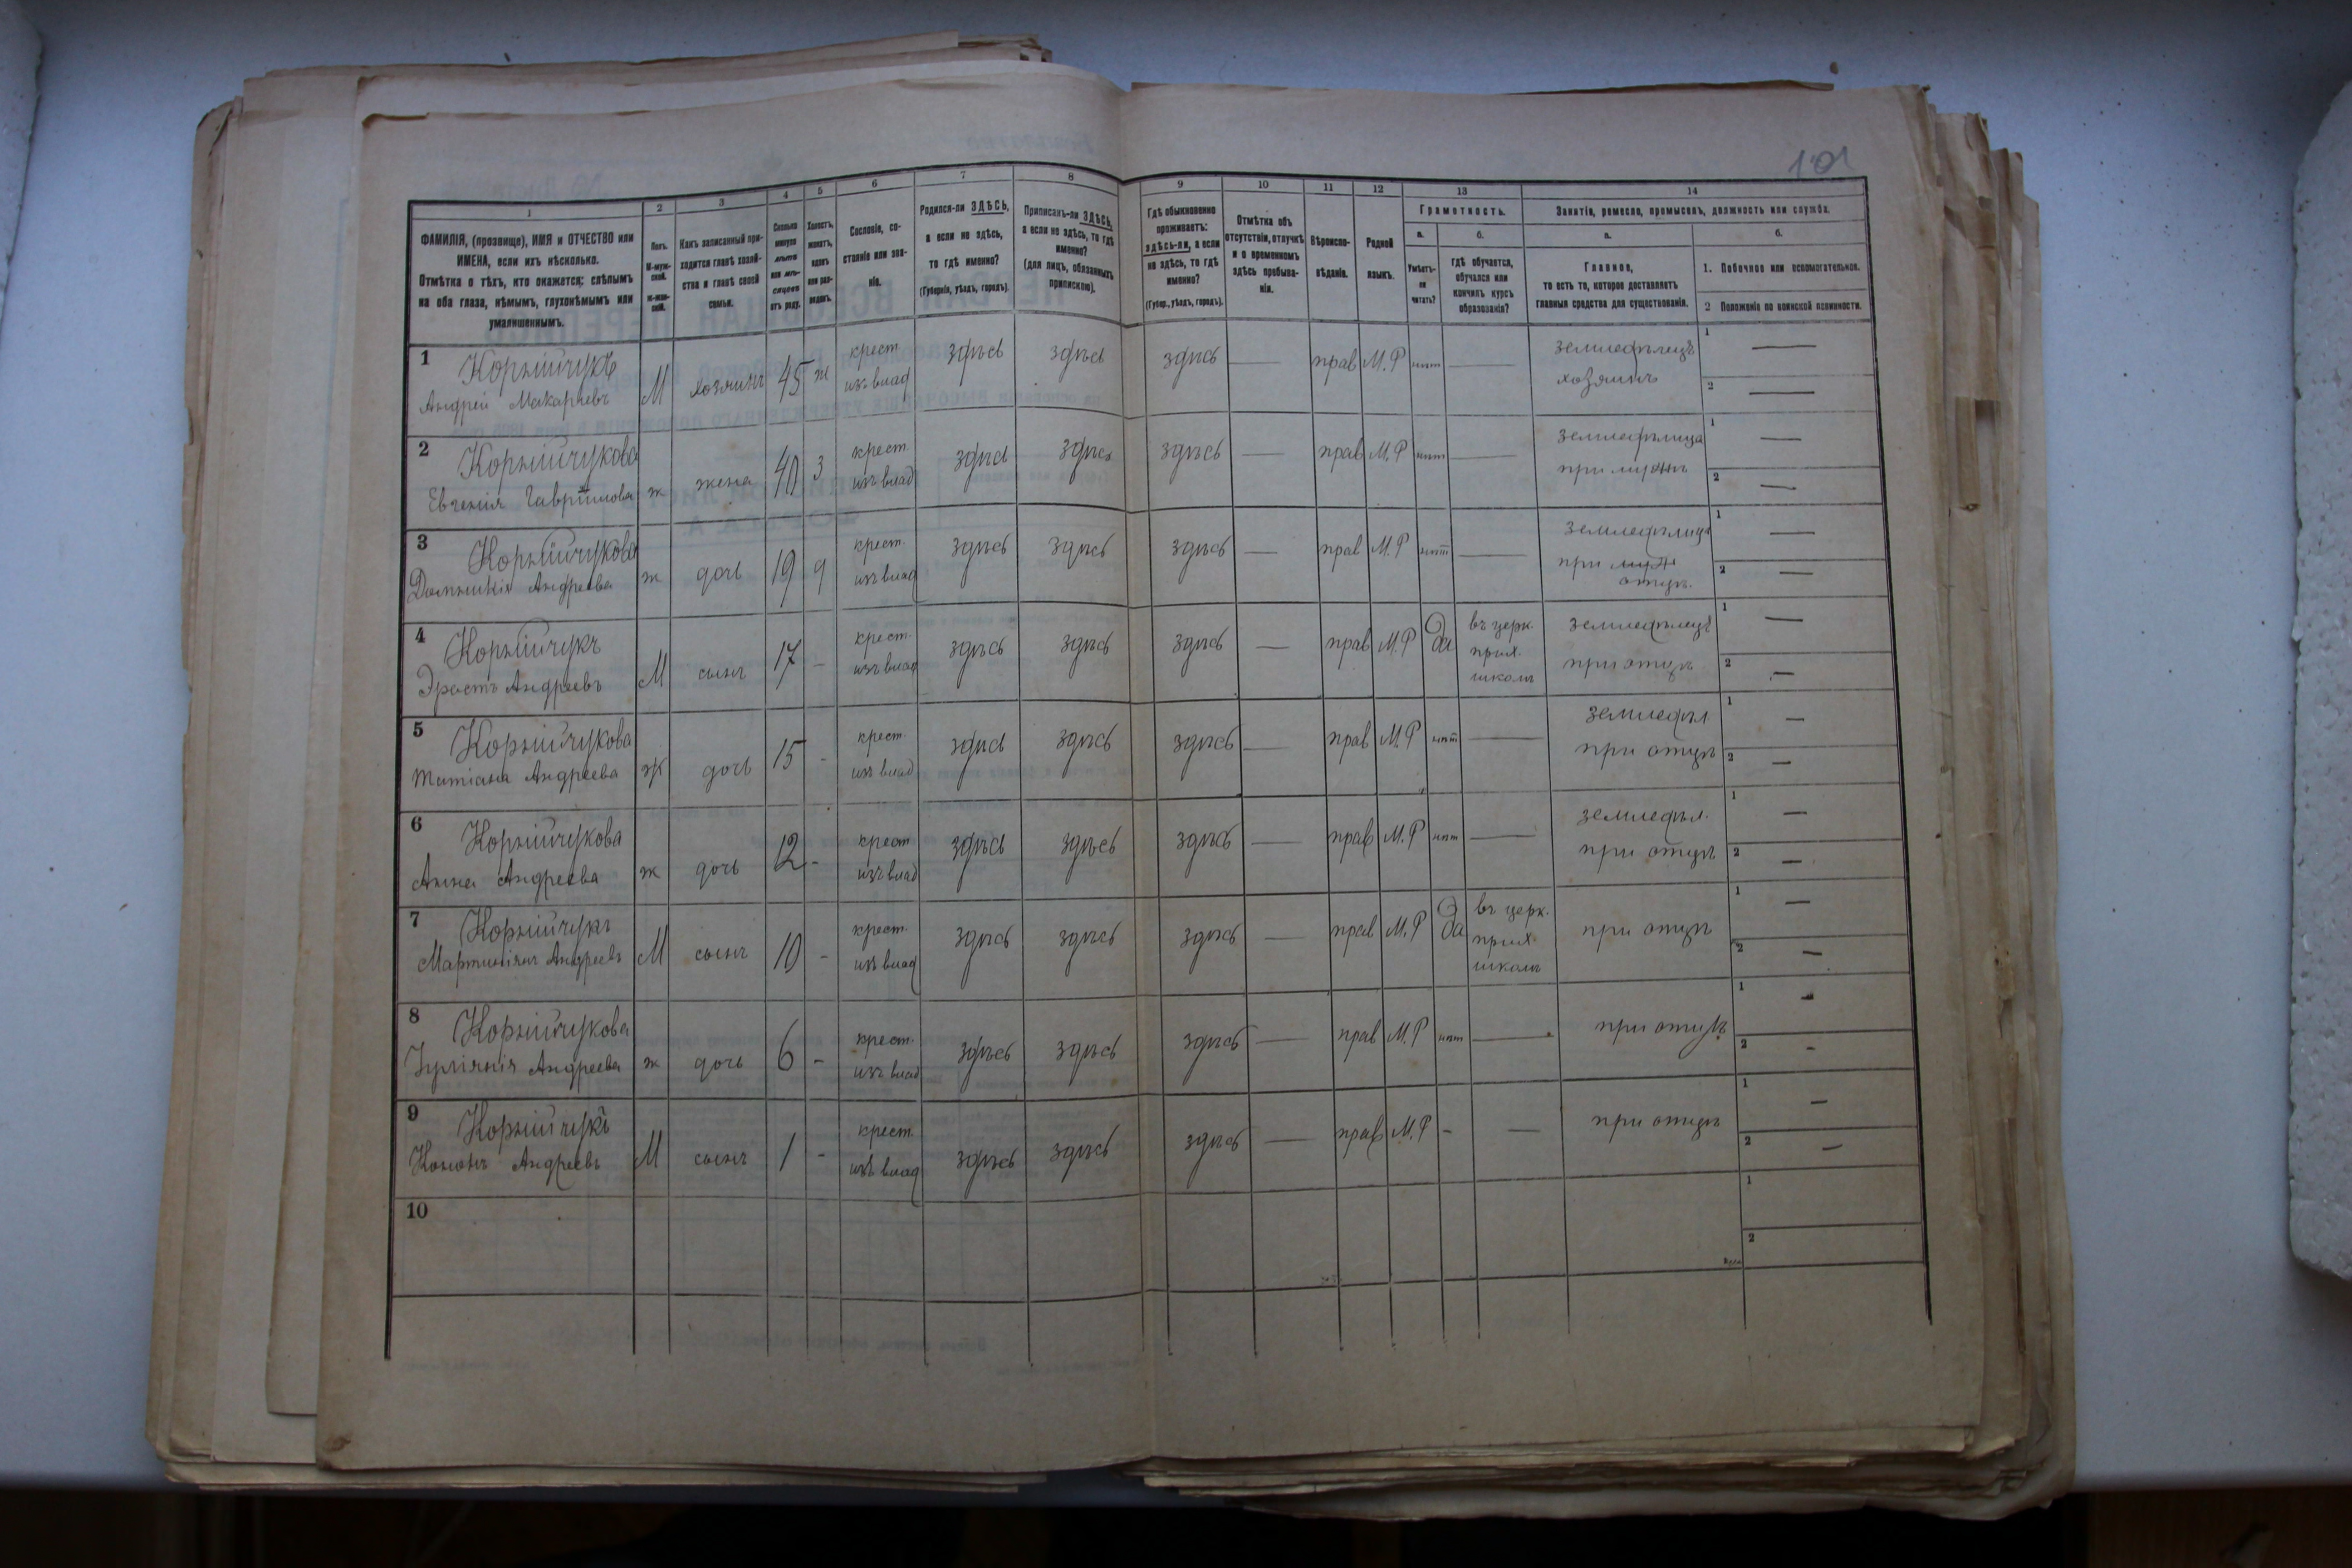 101
1 2 3 4 5 6 7 8 9 10 11 12 13 14
ФАМИЛІЯ, (прозвище), ИМЯ и ОТЧЕСТВО или ИМЕНА, если ихъ нѣсколько.
Отмѣтка о тѣхъ, кто окажется: слѣпымъ на оба глаза, нѣмымъ, глухонѣмымъ или умалишеннымъ.
Полъ.
М-муж-
ской.
ж-жен-
скій.
Какъ записанный при-
ходится главѣ хозяй-
ства и главѣ своей
семьи.
Сколько
минуло
лѣтъ
или мѣ-
сяцевъ
отъ роду.
Холостъ,
женатъ,
вдовъ
или раз-
веденъ.
Сословіе, со-
стояніе или зва-
ніе.
Родился-ли ЗДѢСЬ,
а если не здѣсь,
то гдѣ именно?
(Губернія, уѣздъ, городъ).
Приписанъ-ли ЗДѢСЬ,
а если не здѣсь, то гдѣ
именно?
(для лицъ, обязанныхъ
припискою).
Гдѣ обыкновенно
проживаетъ:
здѣсь-ли, а если
не здѣсь, то гдѣ
именно?
(Губер., уѣздъ, городъ).
Отмѣтка объ
отсутствіи, отлучкѣ
и о временномъ
здѣсь пребыва-
ніи.
Вѣроиспо-
вѣданіе.
Родной
языкъ.
Грамотность.
а.
Умѣетъ-
ли
читать?
б.
гдѣ обучается,
обучался или
кончилъ курсъ
образованія?
Занятія, ремесло, промыселъ, должность или служба.
а.
Главное,
то есть то, которое доставляетъ
главныя средства для существованія.
б.
1. Побочное или вспомогательное.
2 Положеніе по воинской повинности.
1 Корнійчукъ
Андрей Макарьевъ М хозяинъ 45 ж крест. изъ влад здѣсь здѣсь здѣсь — прав М.Р нѣт — земледѣлецъ хозяинъ 1 — 2 —
2 Корнійчукова
Евгенія Гаврилова ж жена 40 З крест. изъ влад здѣсь здѣсь здѣсь — прав М.Р нѣт — земледѣлица при мужѣ 1 — 2 —
3 Корнійчукова
Домникія Андреева ж дочь 19 д крест. изъ влад здѣсь здѣсь здѣсь — прав М.Р нѣт — земледѣлица при отцѣ. 1 — 2 —
4 Корнійчукъ
Эрастъ Андреевъ М сынъ 17 - крест. изъ влад здѣсь здѣсь здѣсь — прав М.Р Да въ церк. прих. школѣ земледѣлецъ при отцѣ 1 — 2 —
5 Корнійчукова
Татіана Андреева ж дочь 15 - крест. изъ влад здѣсь здѣсь здѣсь — прав М.Р нѣт — земледѣл при отцѣ 1 — 2 —
6 Корнійчукова
Анна Андреева ж дочь 12 - крест изъ влад здѣсь здѣсь здѣсь — прав М.Р нѣт — земледѣл. при отцѣ 1 — 2 —
7 Корнійчукъ
Мартиніанъ Андреевъ М сынъ 10 - крест. изъ влад здѣсь здѣсь здѣсь — прав М.Р Да въ церк. прих. школѣ при отцѣ 1 — 2 —
8 Корнійчукова
Іуліанія Андреева ж дочь 6 - крест. изъ влад здѣсь здѣсь здѣсь — прав М.Р нѣт — при отцѣ 1 - 2 -
9 Корнійчукъ
Кононъ Андреевъ М сынъ 1 - крест. изъ влад здѣсь здѣсь здѣсь — прав М.Р - — при отцѣ 1 — 2 —
10 1 2